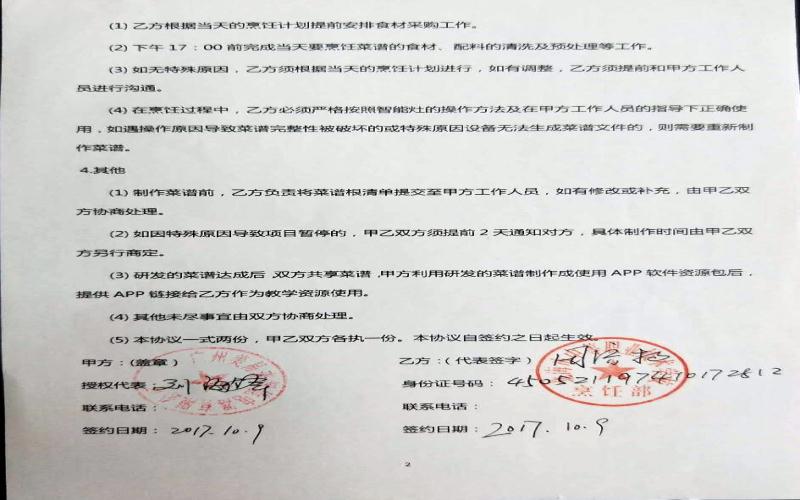 (1) 乙方根据当天的烹饪计划提前安排食材采购工作。
(2) 下午 17：00 前完成当天要烹饪菜谱的食材、配料的清洗及预处理等工作。
(3) 如无特殊原因，乙方须根据当天的烹饪计划进行，如有调整，乙方须提前和甲方工作人
员进行沟通。
(4) 在烹饪过程中，乙方必须严格按照智能灶的操作方法及在甲方工作人员的指导下正确使
用，如遇操作原因导致菜谱完整性被破坏的或特殊原因设备无法生成菜谱文件的，则需要重新制
作菜谱。
4.其他
(1) 制作菜谱前，乙方负责将菜谱根清单提交至甲方工作人员，如有修改或补充，由甲乙双
方协商处理。
(2) 如因特殊原因导致项目暂停的，甲乙双方须提前 2 天通知对方，具体制作时间由甲乙双
方另行商定。
(3) 研发的菜谱达成后,双方共享菜谱,甲方利用研发的菜谱制作成使用 APP 软件资源包后，
提供 APP 链接给乙方作为教学资源使用。
(4) 其他未尽事宜由双方协商处理。
(5) 本协议一式两份，甲乙双方各执一份。本协议自签约之日起生效。
甲方：(盖章) 广州
乙方：( 代表签字 )
授权代表：刘
身份证号码： 450521197410172812
烹饪部
联系电话：
联系电话：
签约日期： 2017.10.9
签约日期： 2017.10.9
2